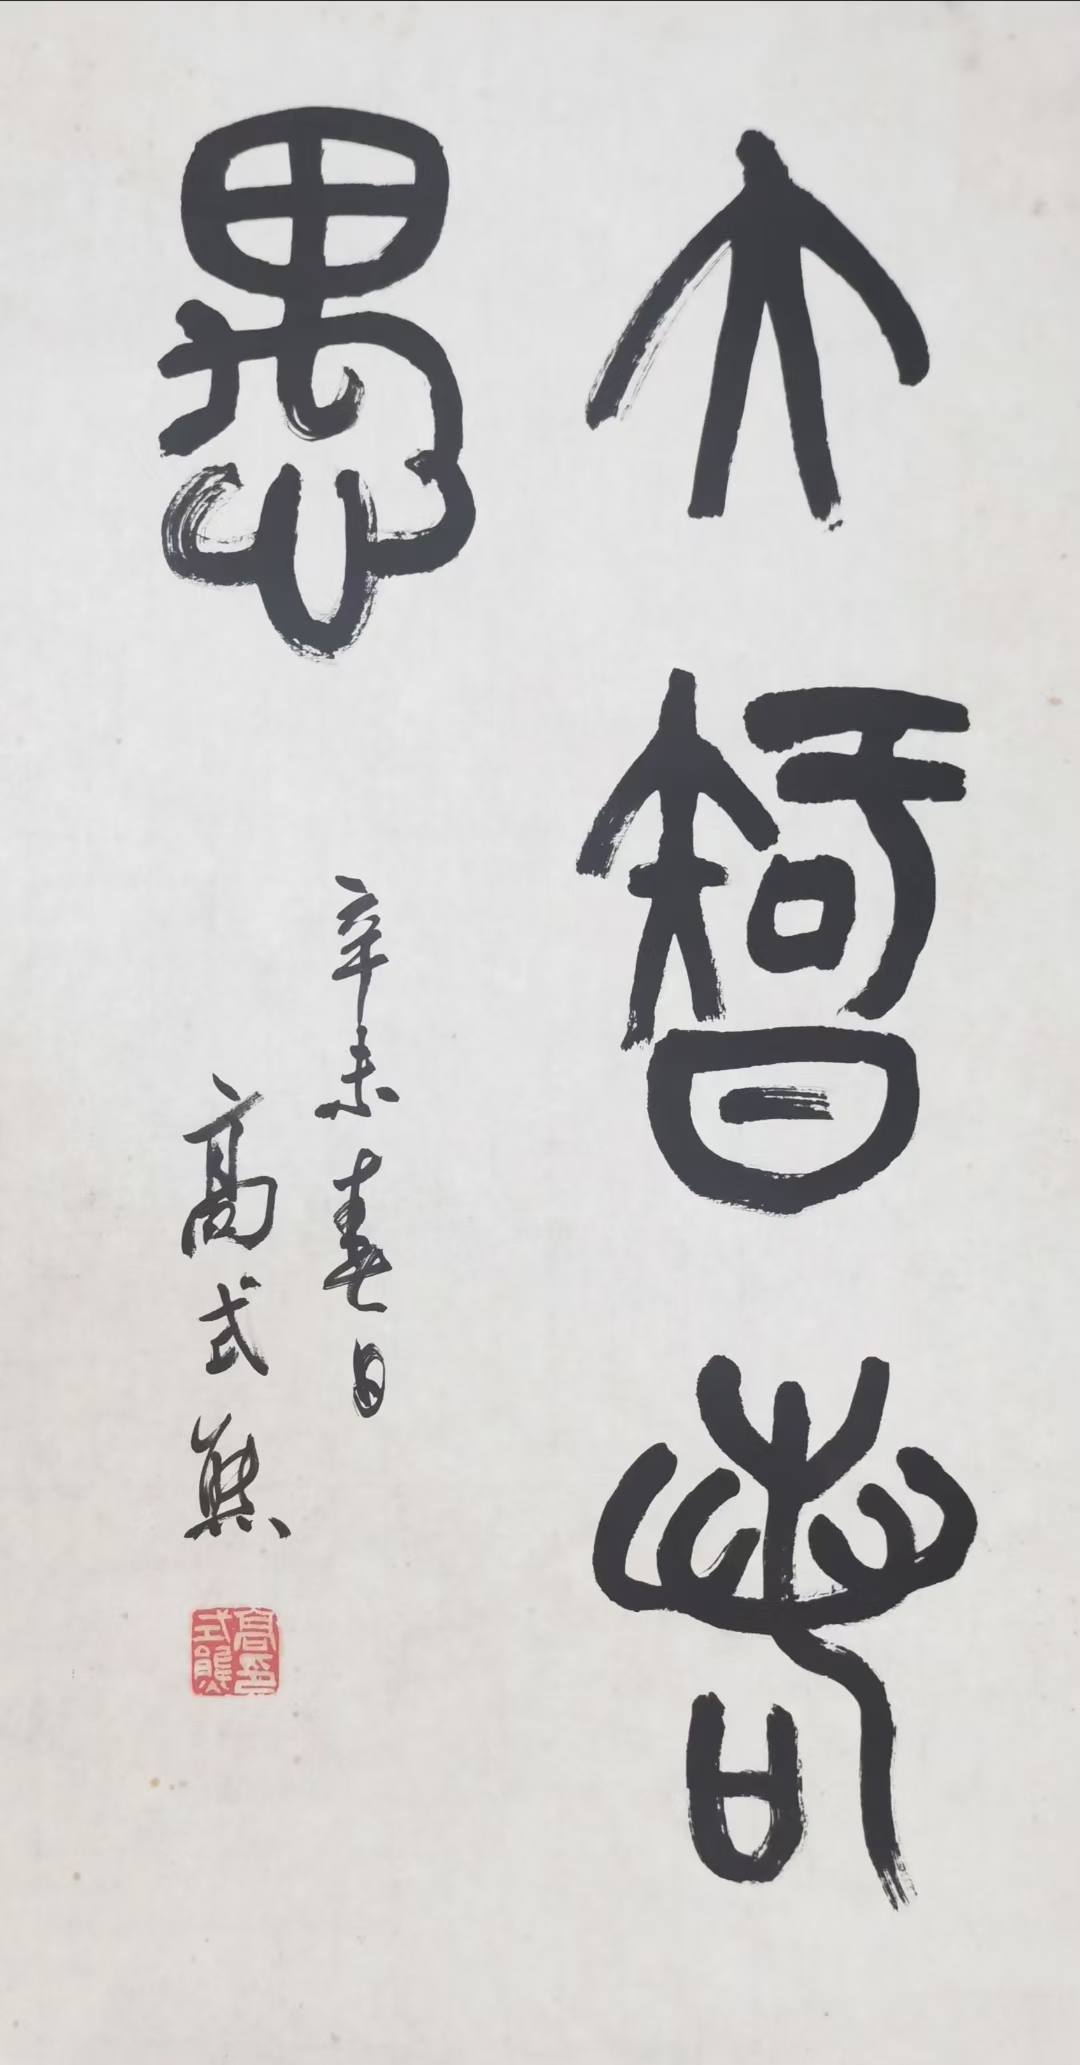 大智若
愚
辛未春日
高式熊
高式熊印